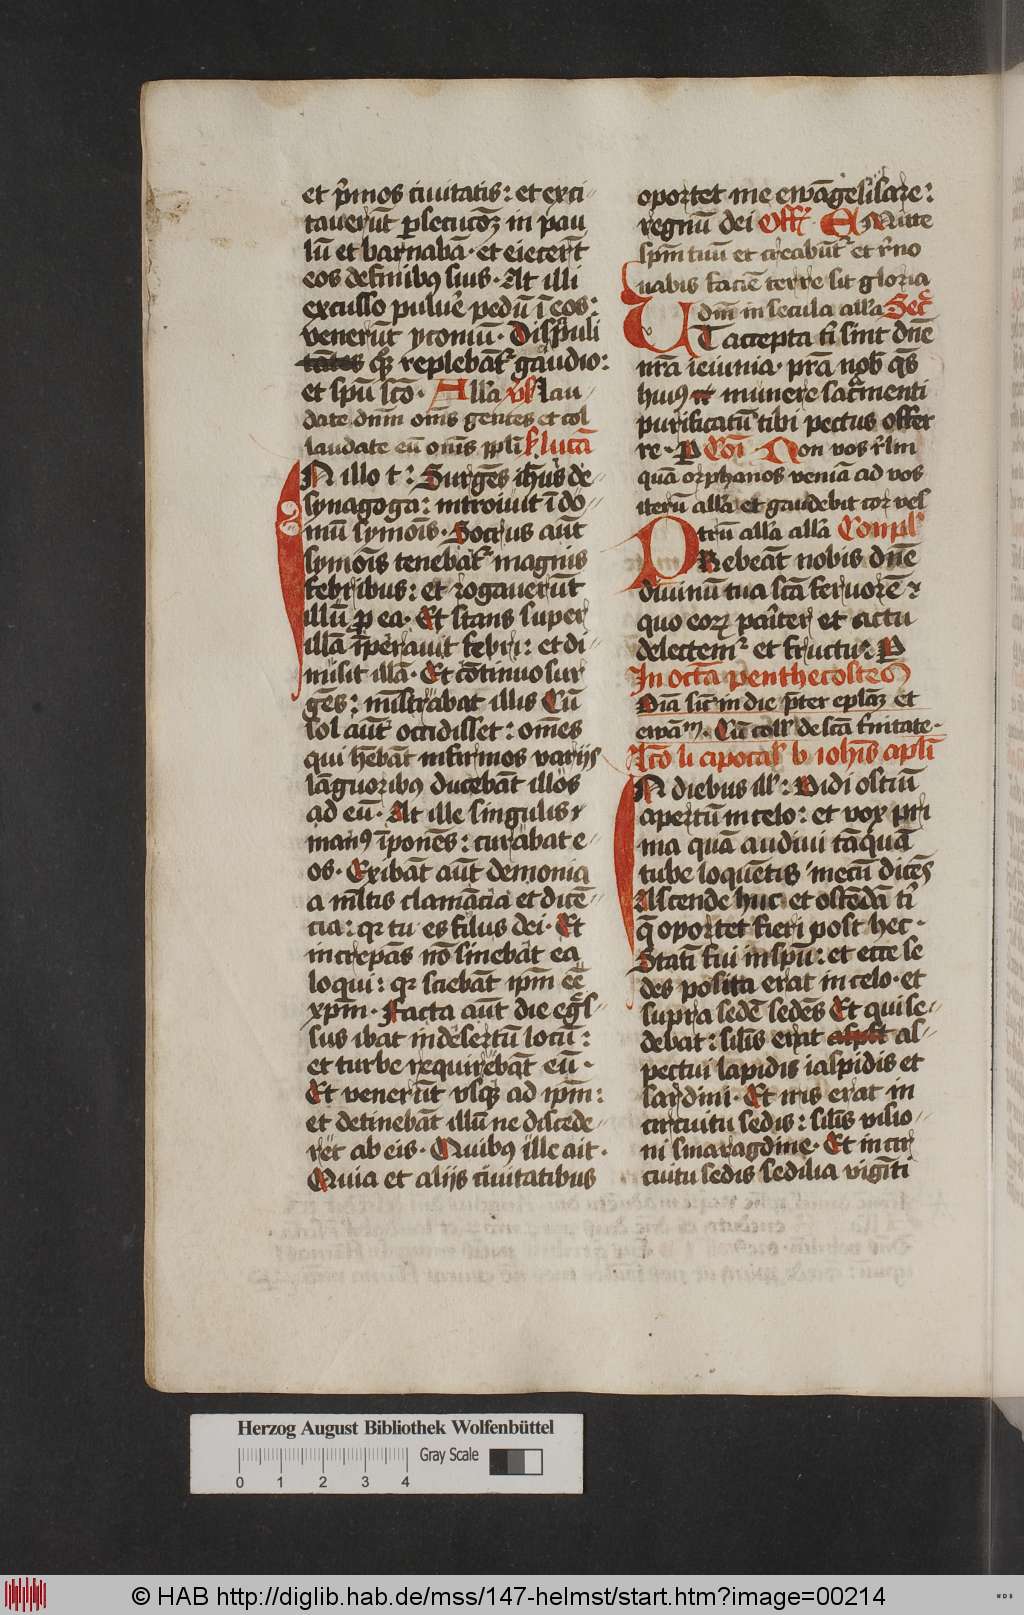 et p̄mos ciuitatis: et exci-
tauerūt ꝑsecucōꝫ in pau
lū et barnabā· et eiecerūt
eos de finibꝯ suis· At illi
excusso puluē pedū ī eos:
venerūt yconiū· Discīpuli
tates qꝫ replebāt gaudio:
et spū sctō· Alla v̄s lau-
date dnm oms gentes et col
laudate eū oms ppli s lucā
IN illo t: Surgēs ihūs de
synagoga: introiuit ī do-
mū symōis· Socrus aūt
symōis tenebat magnis
febribus: et rogauerūt
illū ꝓ ea· Et stans super
illā īperauit febri: et di-
misit illā· Et cōtinuo sur
gēs: mīstrabat illis Cū
sol aūt occidisset: omēs
qui hēbāt infirmos varijs
lāguoribꝯ ducebāt illos
ad eū· At ille singulis
manꝯ īponēs: curabat e-
os· Exibāt aūt demonia
a mltis clamācia et dicē-
cia: qr tu es filius dei· Et
increpās nō sinebat ea
loqui: qr sciebāt ipm eē
xpm· Facta aūt die egs-
sus ibat in desertū locū:
et turbe requirebāt eū·
Et venerūt vsqꝫ ad ipm:
et detinebāt illū ne discede-
ret ab eis· Quibꝯ ille ait·
Quia et alijs ciuitatibus
oportet me ewāgelisare:
regnū dei Off Emitte
spm tuū et creabunt et rno
uabis faciē terre sit gloria
dm in secula alla Secr
UT accepta t sint dnē
nrā ieiunia· prā nob qs
huiꝯ munere sacmenti
purificatū tibi pectus offer
re· P Cōi Non vos rlin
quā orphanos veniā ad vos
iterū alla et gaudebit cor ves
trū alla alla Compl
PRebeāt nobis dnē
diuinū tua sctā feruorē
quo eoꝝ pariter et actu
delectem et fructu: P
In octā penthecostes
Oīa sic in die pter eplaꝫ et
ewām· Cū coll de sctā trīitate·
Lcō li apocal b iohis apli
IN diebus ill: Vidi ostiū
apertū in celo: et vox pri
ma quā audiui tāquā
tube loquētis mecū dicēs
Ascende huc et ostēdā t
q oportet fieri post hec·
Statī fui in spū: et ecce se
des posita erat in celo· et
supra sedē sedēs Et qui se-
debat: silīs erat aspst as-
pectui lapidis iaspidis et
sardini· Et iris erat in
circuitu sedis: silīs visio-
ni smaragdine· Et in cir
cuitu sedis sedilia vigīti
Herzog August Bibliothek Wolfenbüttel
Gray Scale
0 1 2 3 4
© HAB http://diglib.hab.de/mss/147-helmst/start.htm?image=00214